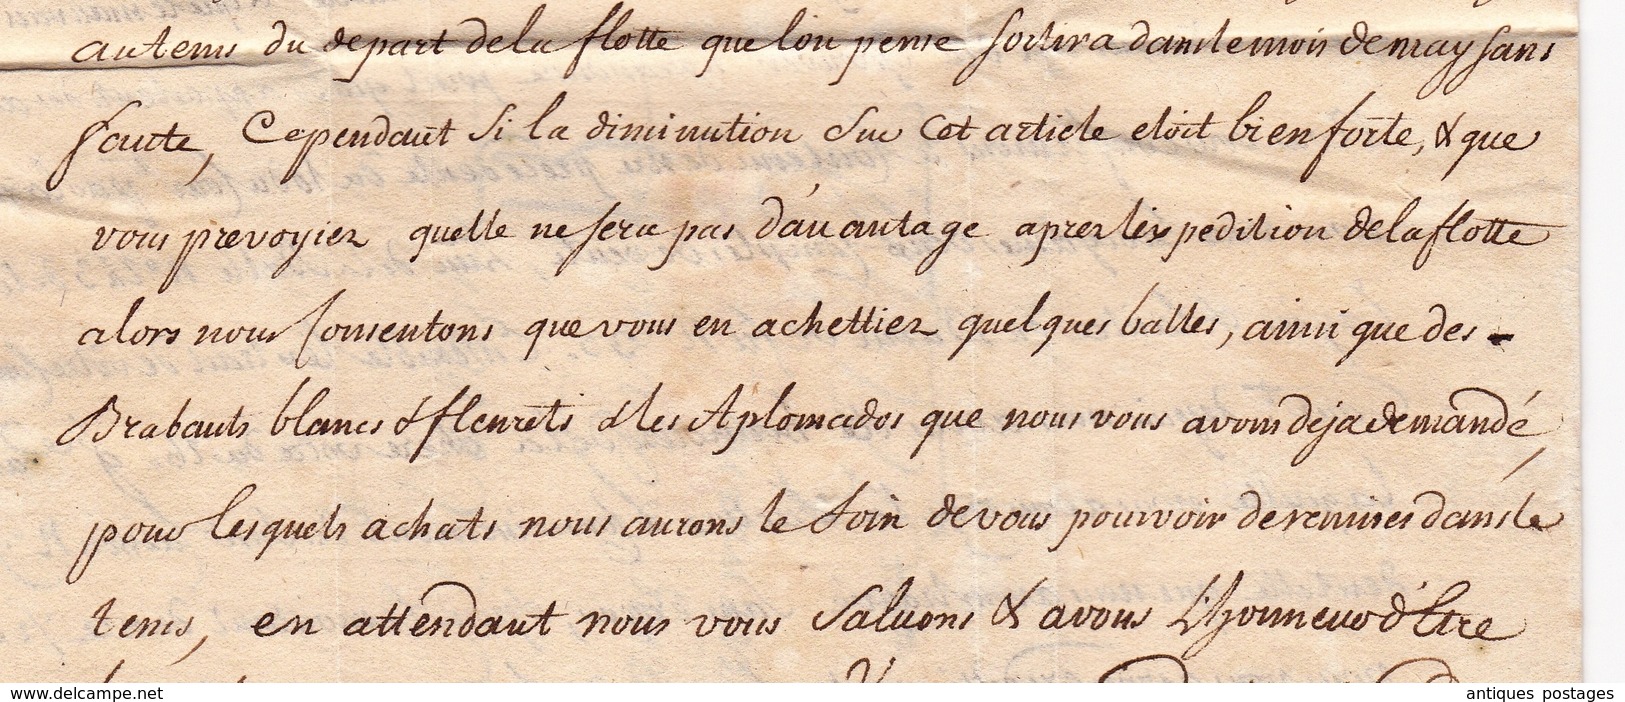 au tems du depart de la flotte que l'on pense sortira dans le mois de may sans
faute, Cependant si la diminution sur cet article etoit bien forte, & que
vous prevoyiez quelle ne sera pas d'avantage apres l'expedition de la flotte
alors nous consentons que vous en achettiez quelques balles, ainsi que des -
Brabants blancs & fleurets & les Aplomados que nous vous avons deja demandé,
pour lesquels achats nous aurons le soin de vous pourvoir de remises dans le
tems, en attendant nous vous saluons & avons L'honneur d'Etre
www.delcampe.net
antiques postages